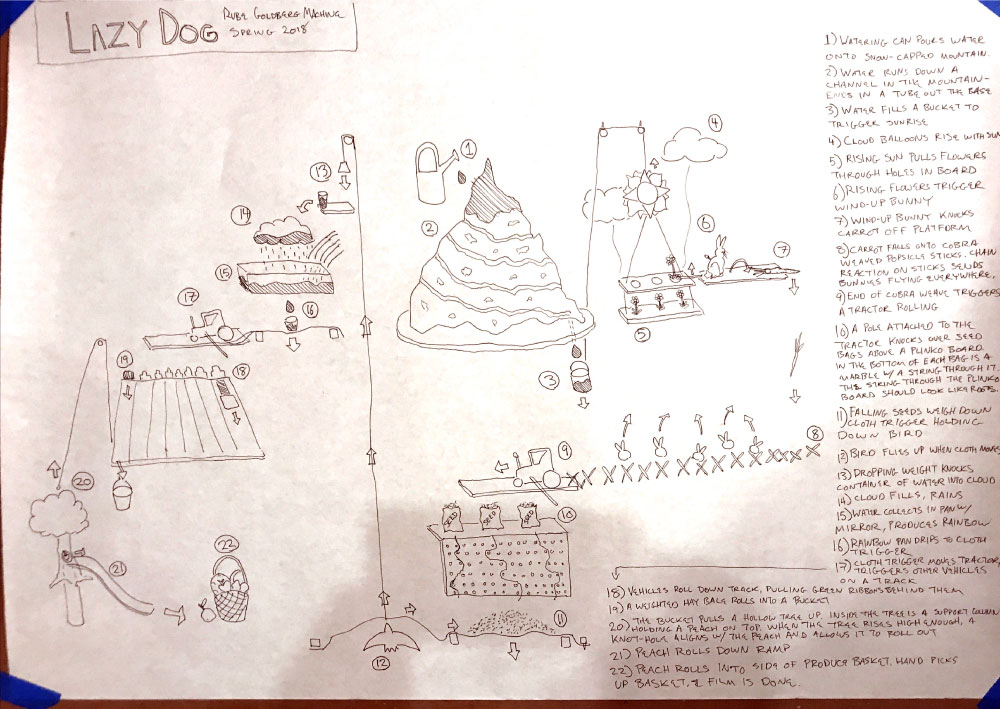 LAZY DOG
RUBE GOLDBERG MACHINE
SPRING 2018
1) WATERING CAN POURS WATER
ONTO SNOW-CAPPED MOUNTAIN.
2) WATER RUNS DOWN A
CHANNEL IN THE MOUNTAIN-
ENDS IN A TUBE OUT THE BASE
3) WATER FILLS A BUCKET TO
TRIGGER SUNRISE
4) CLOUD BALLOONS RISE WITH SUN
5) RISING SUN PULLS FLOWERS
THROUGH HOLES IN BOARD
6) RISING FLOWERS TRIGGER
WIND-UP BUNNY
7) WIND-UP BUNNY KNOCKS
CARROT OFF PLATFORM
8) CARROT FALLS ONTO COBRA
WEAVED POPSICLE STICKS. CHAIN
REACTION ON STICKS SENDS
BUNNIES FLYING EVERYWHERE.
9) END OF COBRA WEAVE TRIGGERS
A TRACTOR ROLLING
10) A POLE ATTACHED TO THE
TRACTOR KNOCKS OVER SEED
BAGS ABOVE A PLINKO BOARD.
IN THE BOTTOM OF EACH BAG IS A
MARBLE W/ A STRING THROUGH IT.
THE STRING THROUGH THE PLINKO
BOARD SHOULD LOOK LIKE ROOTS.
11) FALLING SEEDS WEIGH DOWN
CLOTH TRIGGER HOLDING
DOWN BIRD
12) BIRD FLIES UP WHEN CLOTH MOVES
13) DROPPING WEIGHT KNOCKS
CONTAINER OF WATER INTO CLOUD
14) CLOUD FILLS, RAINS
15) WATER COLLECTS IN PAN W/
MIRROR, PRODUCES RAINBOW
16) RAINBOW PAN DRIPS TO CLOTH
TRIGGER
17) CLOTH TRIGGER MOVES TRACTOR,
TRIGGERS OTHER VEHICLES
ON A TRACK
18) VEHICLES ROLL DOWN TRACK, PULLING GREEN RIBBONS BEHIND THEM
19) A WEIGHTED HAY BALE ROLLS INTO A BUCKET
20) THE BUCKET PULLS A HOLLOW TREE UP. INSIDE THE TREE IS A SUPPORT COLUMN
HOLDING A PEACH ON TOP. WHEN THE TREE RISES HIGH ENOUGH, A
KNOT-HOLE ALIGNS W/ THE PEACH AND ALLOWS IT TO ROLL OUT
21) PEACH ROLLS DOWN RAMP
22) PEACH ROLLS INTO SIDE OF PRODUCE BASKET. HAND PICKS
UP BASKET, & FILM IS DONE.
1
4
13
14
2
6
7
15
17
16
5
19
18
3
8
9
20
SEED SEED SEED
10
22
21
11
12